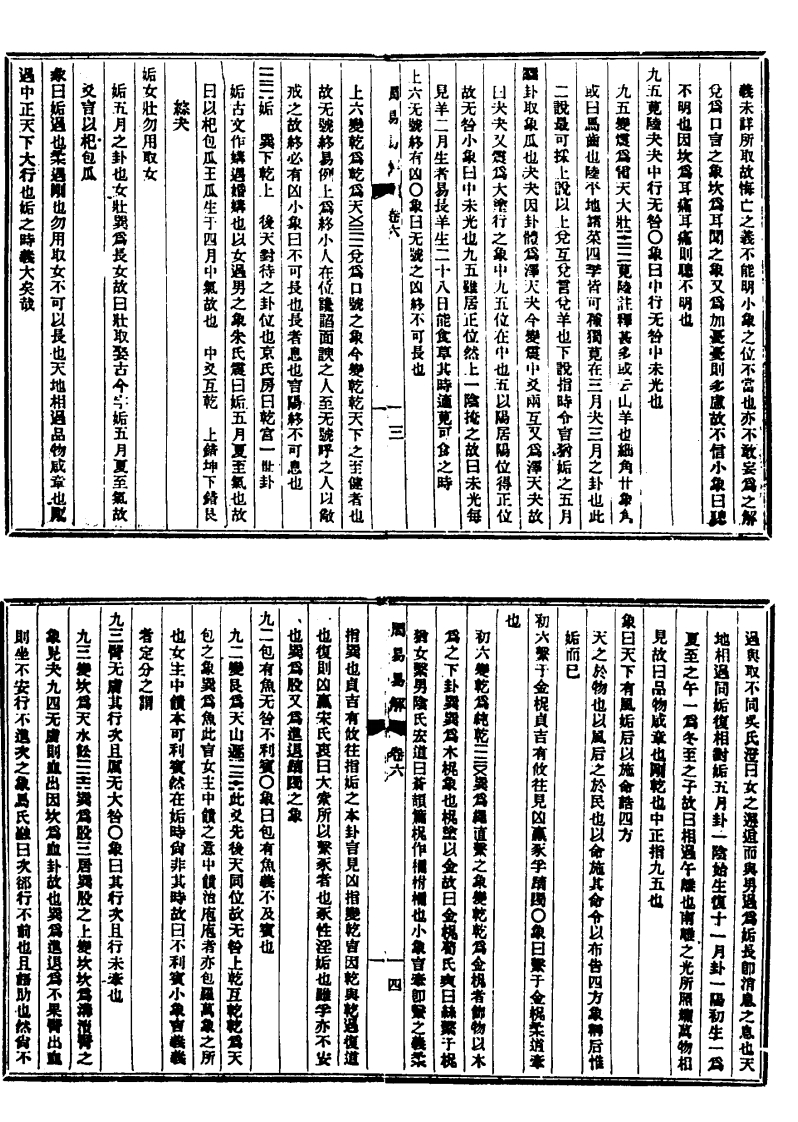 義未詳所取故悔亡之義不能明小象之位不當也亦不敢妄爲之解
兌爲口言之象坎爲耳聞之象又爲加憂憂則多慮故不信小象曰聰
不明也因坎爲耳痛耳痛則聰不明也
九五莧陸夬夬中行无咎○象曰中行无咎中未光也
九五變震爲雷天大壯莧陸註釋甚多或云山羊也細角廿象角
或曰馬齒也陸平地謂菜四季皆可種獨莧在三月夬三月之卦也此
二說最可採上說以上兌互兌皆兌羊也下說指時令言猶姤之五月
卦取象瓜也夬夬因卦體爲澤天夬今變震中爻兩互又爲澤天夬故
曰夬夬又震爲大塗行之象中九五位在中也五以陽居陽位得正位
故无咎小象曰中未光也九五雖居正位然上一陰掩之故曰未光每
見羊二月生者易長羊生二十八日能食草其時適莧可食之時
上六无號終有凶○象曰无號之凶終不可長也
周易易解 卷六 三
上六變乾爲乾爲天兌爲口號之象今變乾乾天下之至健者也
故无號終易例上爲終小人在位讒諂面諛之人至无號呼之人以敵
戒之故終必有凶小象曰不可長也長者息也言陽終不可息也
姤 巽下乾上 後天對待之卦位也京氏房曰乾宮一世卦
姤古文作媾遇婚媾也以女遇男之象朱氏震曰姤五月夏至氣也故
曰以杞包瓜王瓜生于四月中氣故也 中爻互乾 上錯坤下錯艮
綜夬
姤女壯勿用取女
姤五月之卦也女壯巽爲長女故曰壯取娶古今字姤五月夏至氣故
爻言以杞包瓜
彖曰姤遇也柔遇剛也勿用取女不可以長也天地相遇品物咸章也剛
遇中正天下大行也姤之時義大矣哉
遇與取不同吳氏澄曰女之邂逅而與男遇爲姤長卽消息之息也天
地相遇同姤復相對姤五月卦一陰始生復十一月卦一陽初生一爲
夏至之午一爲冬至之子故曰相遇午離也南離之光所照耀萬物相
見故曰品物咸章也剛乾也中正指九五也
象曰天下有風姤后以施命誥四方
天之於物也以風后之於民也以命施其命令以布告四方象辭后惟
姤而已
初六繫于金柅貞吉有攸往見凶羸豕孚蹢躅○象曰繫于金柅柔道牽
也
初六變乾爲純乾巽爲繩直繫之象變乾乾爲金柅者篩物以木
爲之下卦巽巽爲木柅象也柅塗以金故曰金柅荀氏爽曰絲繫于柅
猶女繫男陰氏宏道曰蒼頡篇柅作檷柎檷也小象言牽卽繫之義柔
周易易解 卷六 四
指巽也貞吉有攸往指姤之本卦言見凶指變乾言因乾與乾遇復道
也復則凶羸宋氏衷曰大索所以繫豕者也豕性淫姤也雖孚亦不安
也巽爲股又爲進退蹢躅之象
九二包有魚无咎不利賓○象曰包有魚義不及賓也
九二變艮爲天山遯此爻先後天同位故无咎上乾互乾乾爲天
包之象巽爲魚此言女主中饋之意中饋治庖庖者亦包羅萬象之所
也女主中饋本可利賓然在姤時尙非其時故曰不利賓小象言義義
者定分之謂
九三臀无膚其行次且厲无大咎○象曰其行次且行未牽也
九三變坎爲天水訟巽爲股三居巽股之上變坎坎爲溝瀆臀之
象見夬九四无膚則血出因坎爲血卦故也巽爲進退爲不果臀出血
則坐不安行不進次之象馬氏融曰次郤行不前也且語助也然尙不